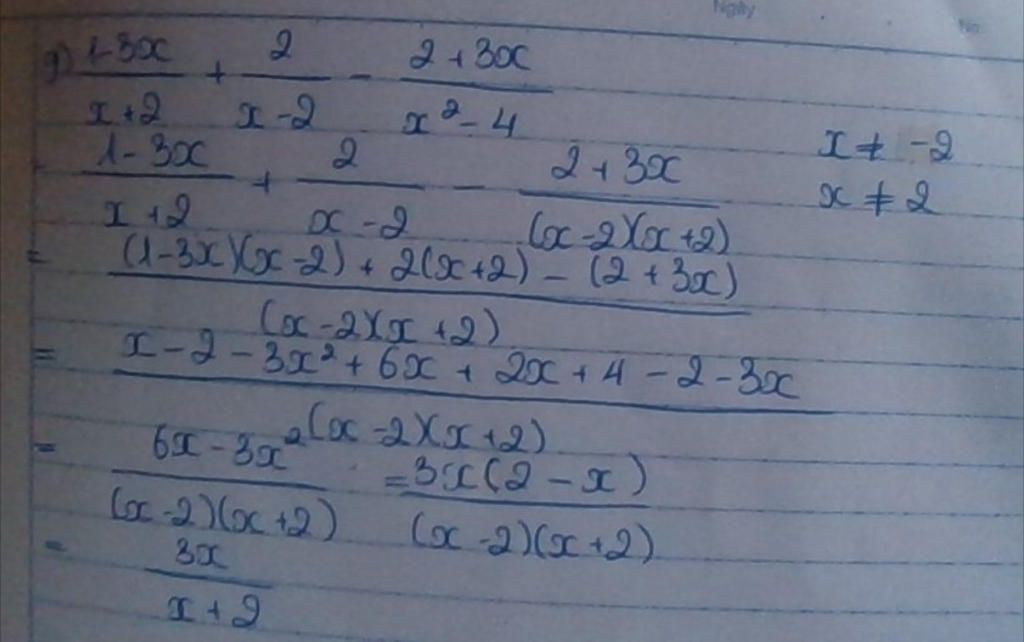 Ngày
No.
g) (1-3x)/(x+2) + 2/(x-2) - (2+3x)/(x²-4)
x ≠ -2
= (1-3x)/(x+2) + 2/(x-2) - (2+3x)/((x-2)(x+2))
x ≠ 2
= ((1-3x)(x-2) + 2(x+2) - (2+3x))/((x-2)(x+2))
= (x-2-3x²+6x+2x+4-2-3x)/((x-2)(x+2))
= (6x-3x²)/((x-2)(x+2)) = 3x(2-x)/((x-2)(x+2))
= 3x/(x+2)